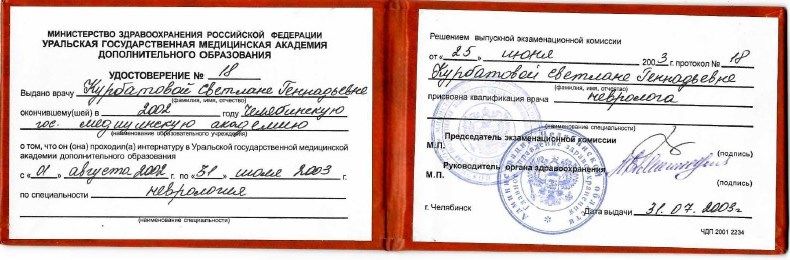 МИНИСТЕРСТВО ЗДРАВООХРАНЕНИЯ РОССИЙСКОЙ ФЕДЕРАЦИИ
УРАЛЬСКАЯ ГОСУДАРСТВЕННАЯ МЕДИЦИНСКАЯ АКАДЕМИЯ
ДОПОЛНИТЕЛЬНОГО ОБРАЗОВАНИЯ
УДОСТОВЕРЕНИЕ № 18
Выдано врачу Курбатовой Светлане Геннадьевне
(фамилия, имя, отчество)
окончившему(шей) в 2002 году Челябинскую
гос. медицинскую академию
(наименование образовательного учреждения)
о том, что он (она) проходил(а) интернатуру в Уральской государственной медицинской
академии дополнительного образования
с « 01 » августа 2002 г. по « 31 » июля 2003 г.
по специальности неврология
(наименование специальности)
Решением выпускной экзаменационной комиссии
от « 25 » июня 2003 г. протокол № 18
Курбатовой Светлане Геннадьевне
(фамилия, имя, отчество)
присвоена квалификация врача невролога
(наименование специальности)
Председатель экзаменационной комиссии
М.П. (подпись)
Руководитель органа здравоохранения
М.П. (подпись)
г. Челябинск Дата выдачи 31.07.2003г
ЧДП 2001 2234